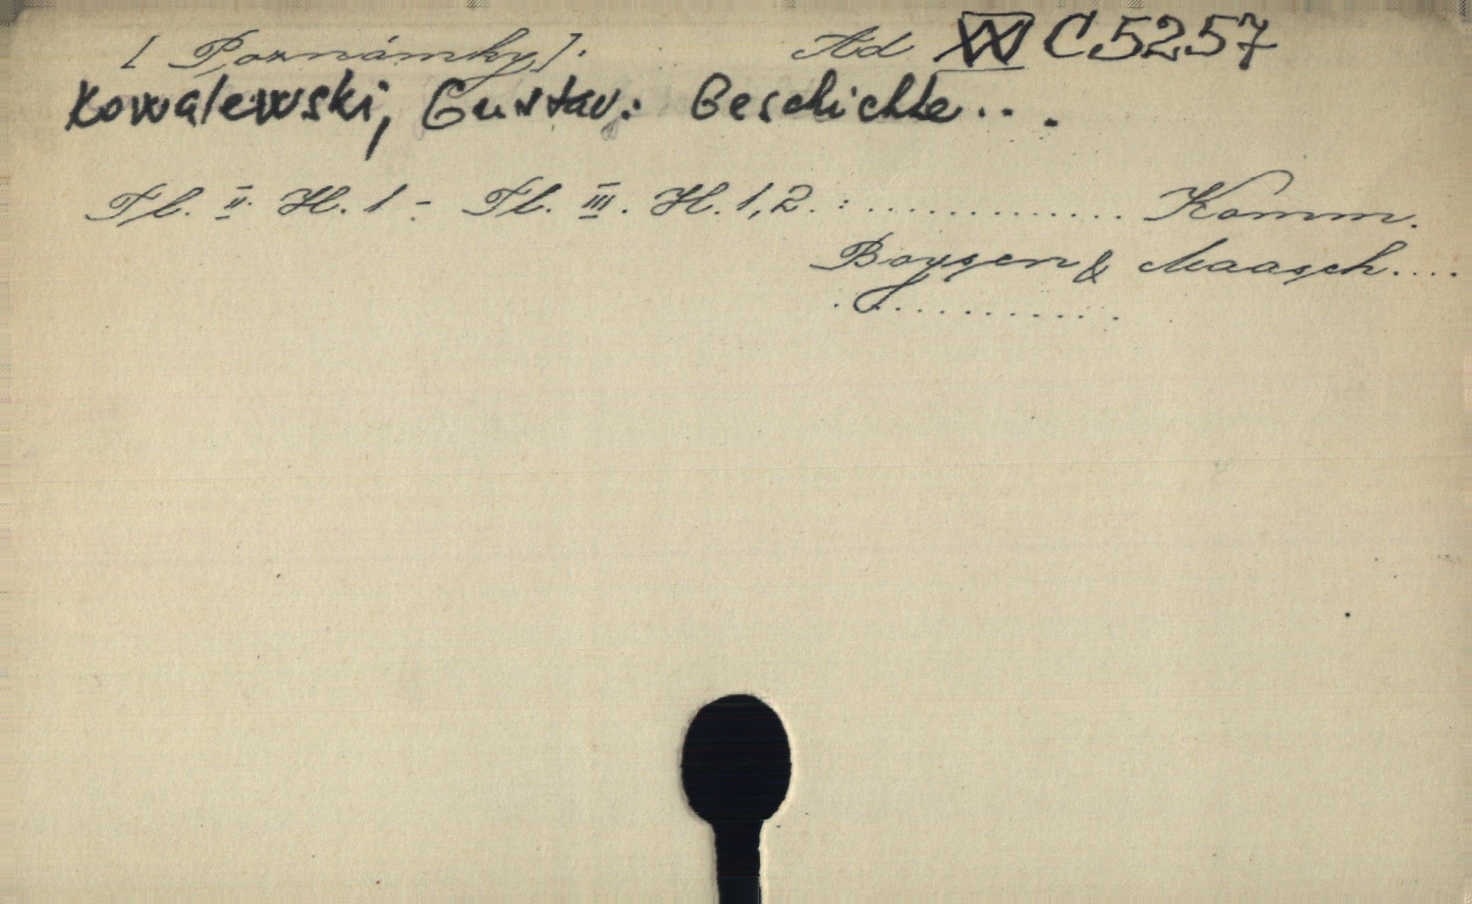 [Poznámky]. Ad XX C 5257
Kowalewski, Gustav: Geschichte...
Tl. II. H. 1 - Tl. III. H. 1, 2. : .............. Komm.
Boysen & Maasch....